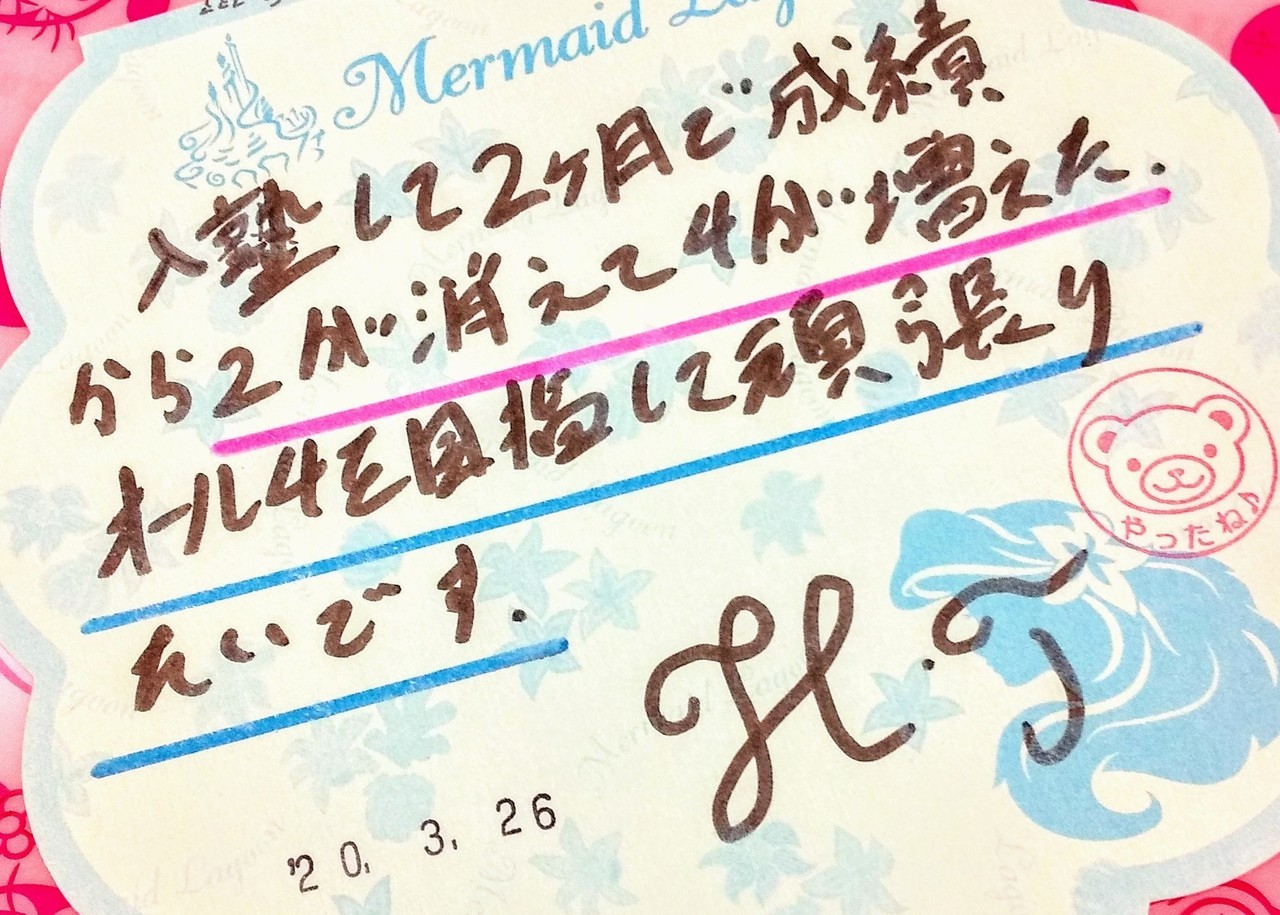 Mermaid La
入塾して2ヶ月で成績
から2が消えて4が増えた.
オール4を目指して頑張り
たいです.
やったね♪
H.T
'20. 3. 26